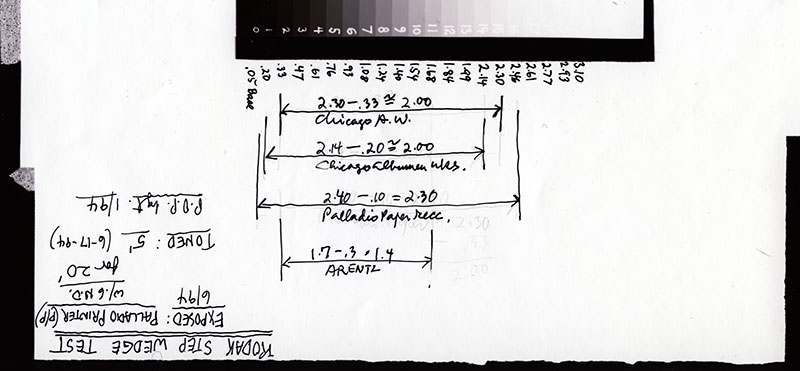 0 1 2 3 4 5 6 7 8 9 10 11 12 13 14 15
.05 Base .20 .33 .47 .61 .76 .93 1.08 1.24 1.40 1.54 1.68 1.84 1.99 2.14 2.30 2.46 2.61 2.77 2.93 3.10
2.30 - .33 ≅ 2.00
Chicago A.W.
2.14 - .20 ≅ 2.00
Chicago Albumen Wks.
2.40 - .10 = 2.30
Palladio Paper recc.
2.30
.33
2.00
1.7 - .3 = 1.4
ARENTZ
KODAK STEP WEDGE TEST
EXPOSED: PALLADIO PRINTER (P/P)
6/94 W/G.N.D.
for 20'
TONED: 5' (6-17-94)
P.O.P. 1/94